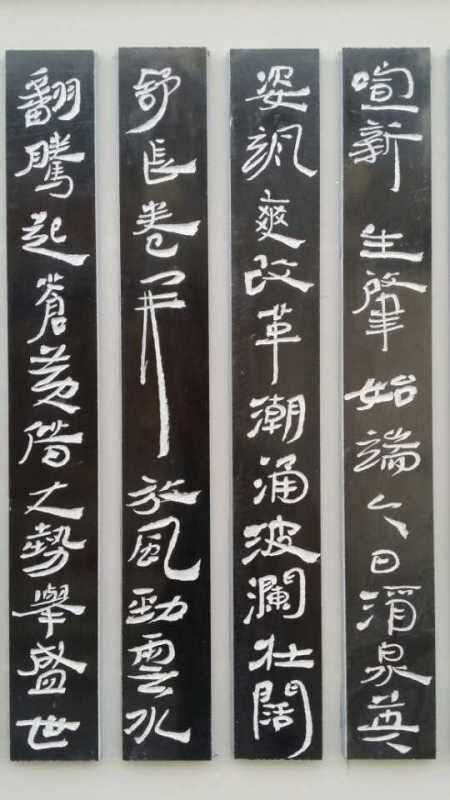 喧新生肇始端今日酒泉英
姿颯爽改革潮涌波瀾壯闊
舒長卷开放風勁雲水
翻騰起蒼黃借大勢舉盛世